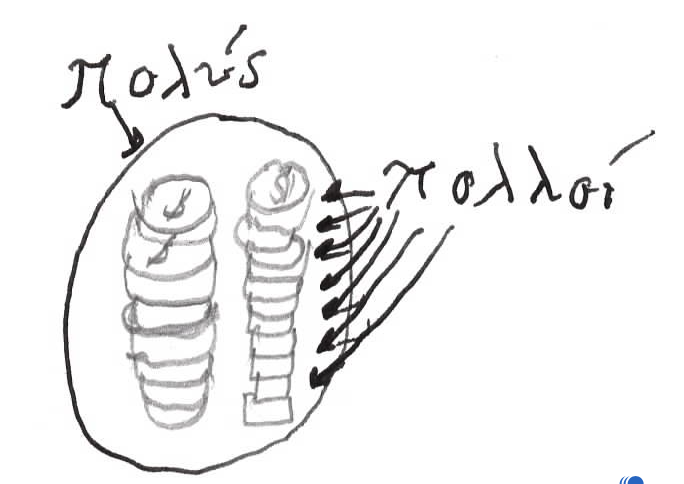 πολύς
πολλοί